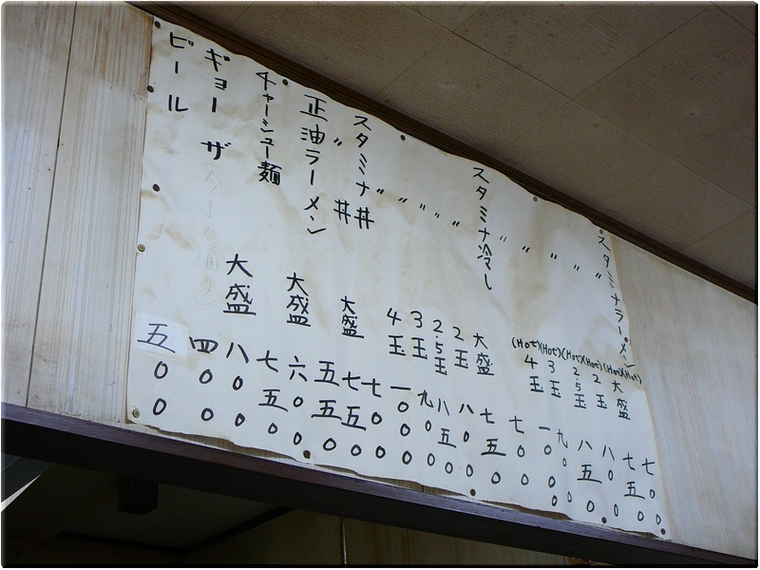 スタミナラーメン (Hot) 七〇〇
〃 (Hot) 大盛 七五〇
〃 (Hot) 2玉 八〇〇
〃 (Hot) 2.5玉 八五〇
〃 (Hot) 3玉 九〇〇
〃 (Hot) 4玉 一〇〇〇
スタミナ冷し 七〇〇
〃 大盛 七五〇
〃 2玉 八〇〇
〃 2.5玉 八五〇
〃 3玉 九〇〇
〃 4玉 一〇〇〇
スタミナ丼 七〇〇
〃 丼 大盛 七五〇
正油ラーメン 五五〇
大盛 六〇〇
チャーシュー麺 七五〇
大盛 八〇〇
ギョーザ 四〇〇
ビール 五〇〇